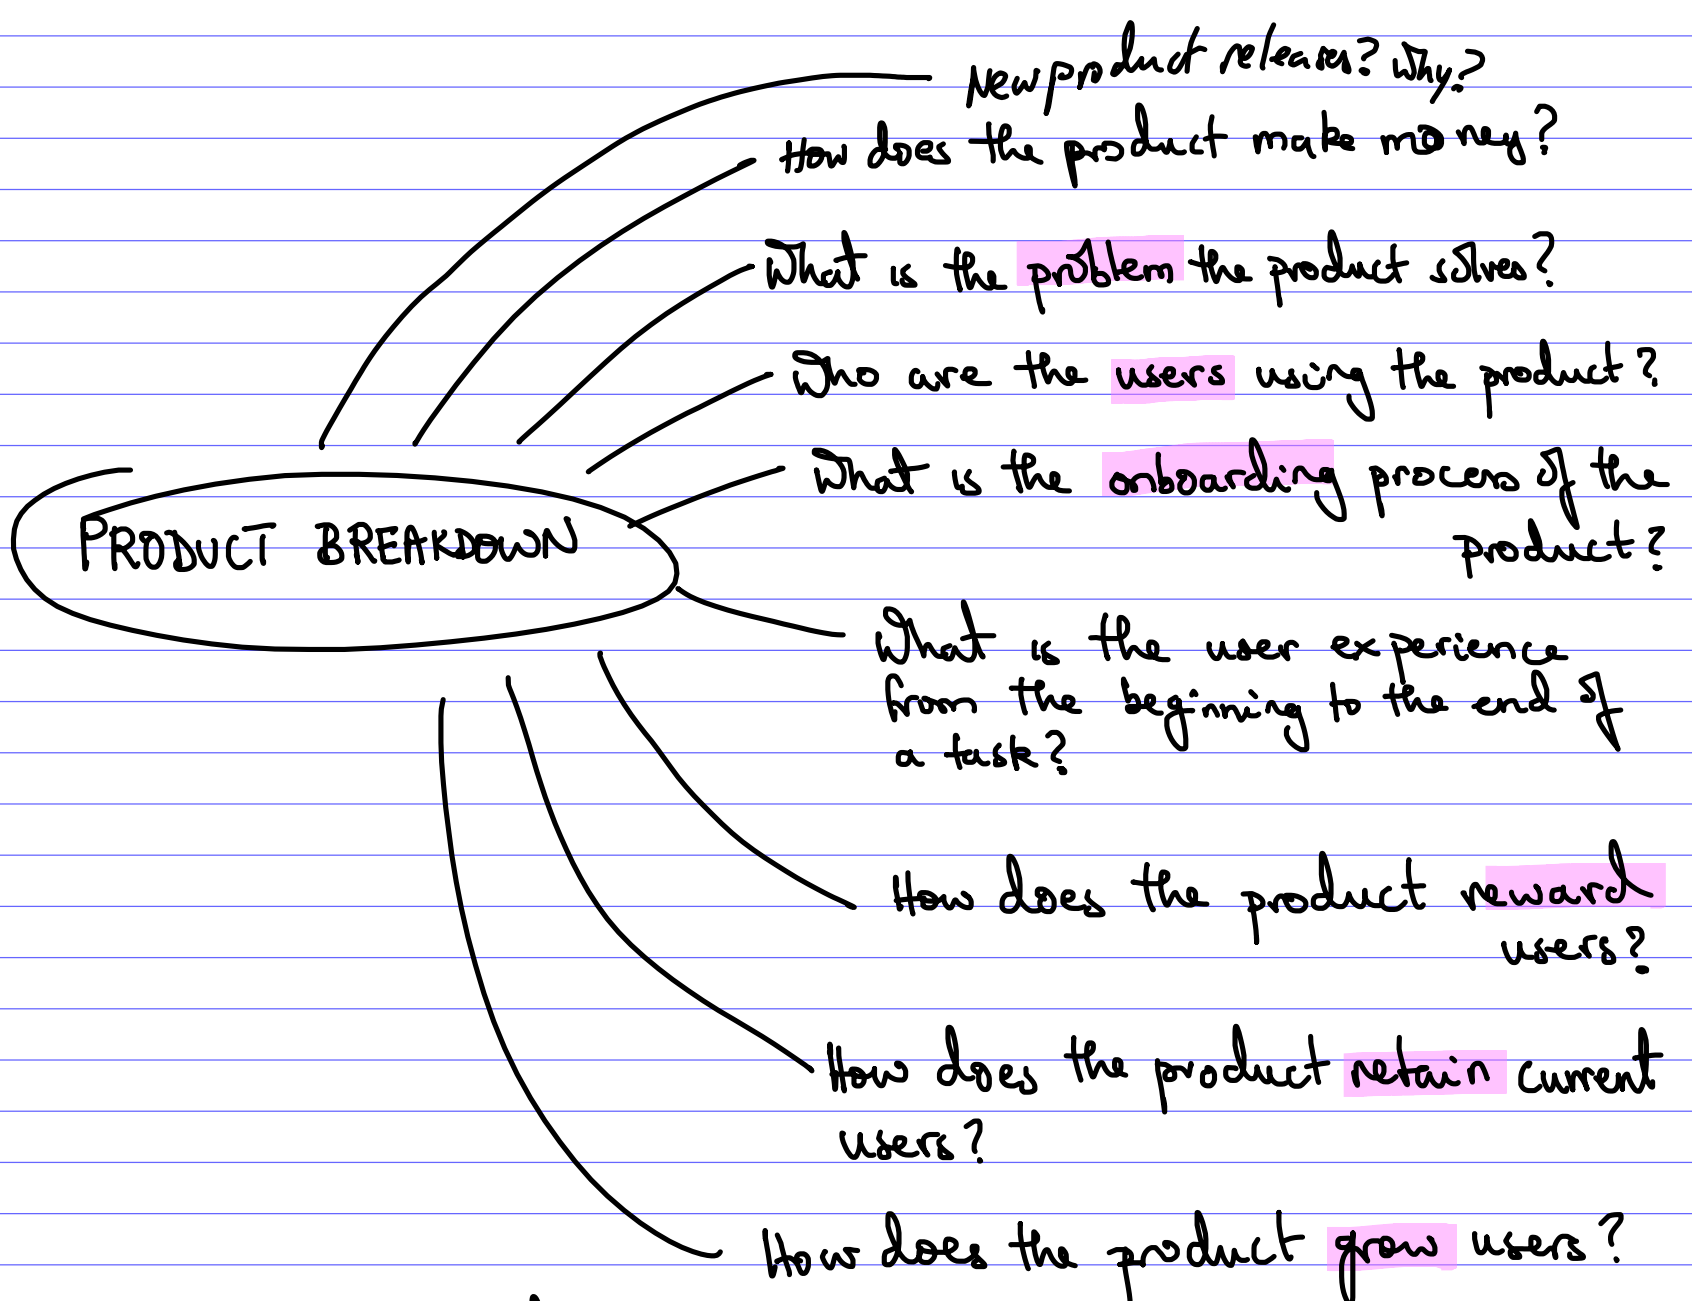 New product releases? Why?
How does the product make money?
What is the problem the product solves?
Who are the users using the product?
What is the onboarding process of the
product?
PRODUCT BREAKDOWN
What is the user experience
from the beginning to the end of
a task?
How does the product reward
users?
How does the product retain current
users?
How does the product grow users?